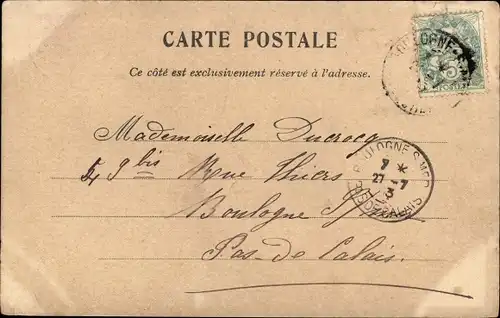 CARTE POSTALE
Ce côté est exclusivement réservé à l'adresse.
BOULOGNE-S-MER
5
Mademoiselle Ducrocq
bis Rue Thiers
Boulogne s/mer
Pas-de-Calais
BOULOGNE-S-MER
7 *
27 -7
3
PAS DE CALAIS